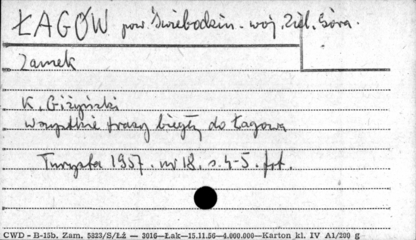 ŁAGÓW pow. Świebodzin. woj. Ziel. Góra.
Zamek
K. Giżyński
Wszystkie trasy biegły do Łagowa
Turysta 1957. nr 18. s. 4-5. fot.
CWD - B-15b. Zam. 5323/S/Łż — 3016—Łak—15.11.56—4.000.000—Karton kl. IV A1/200 g